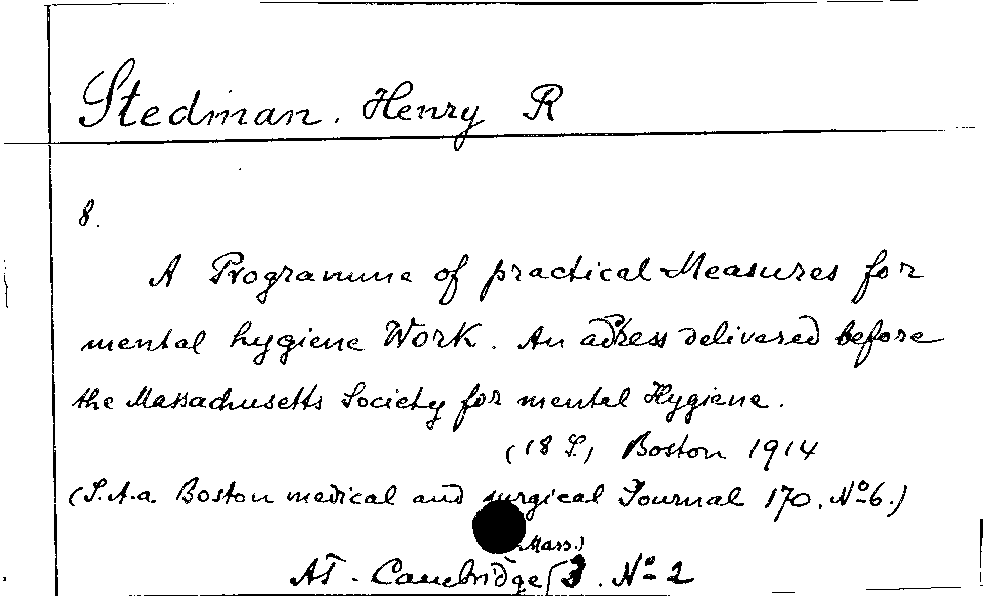 Stedman. Henry R
8.
A Programme of practical Measures for
mental hygiene Work. An adress delivered before
the Massachusetts Society for mental Hygiene.
(18 S.) Boston 1914
(S.A.a. Boston medical and surgical Journal 170. No 6.)
(Mass.)
AT. Cambridge 3. No 2